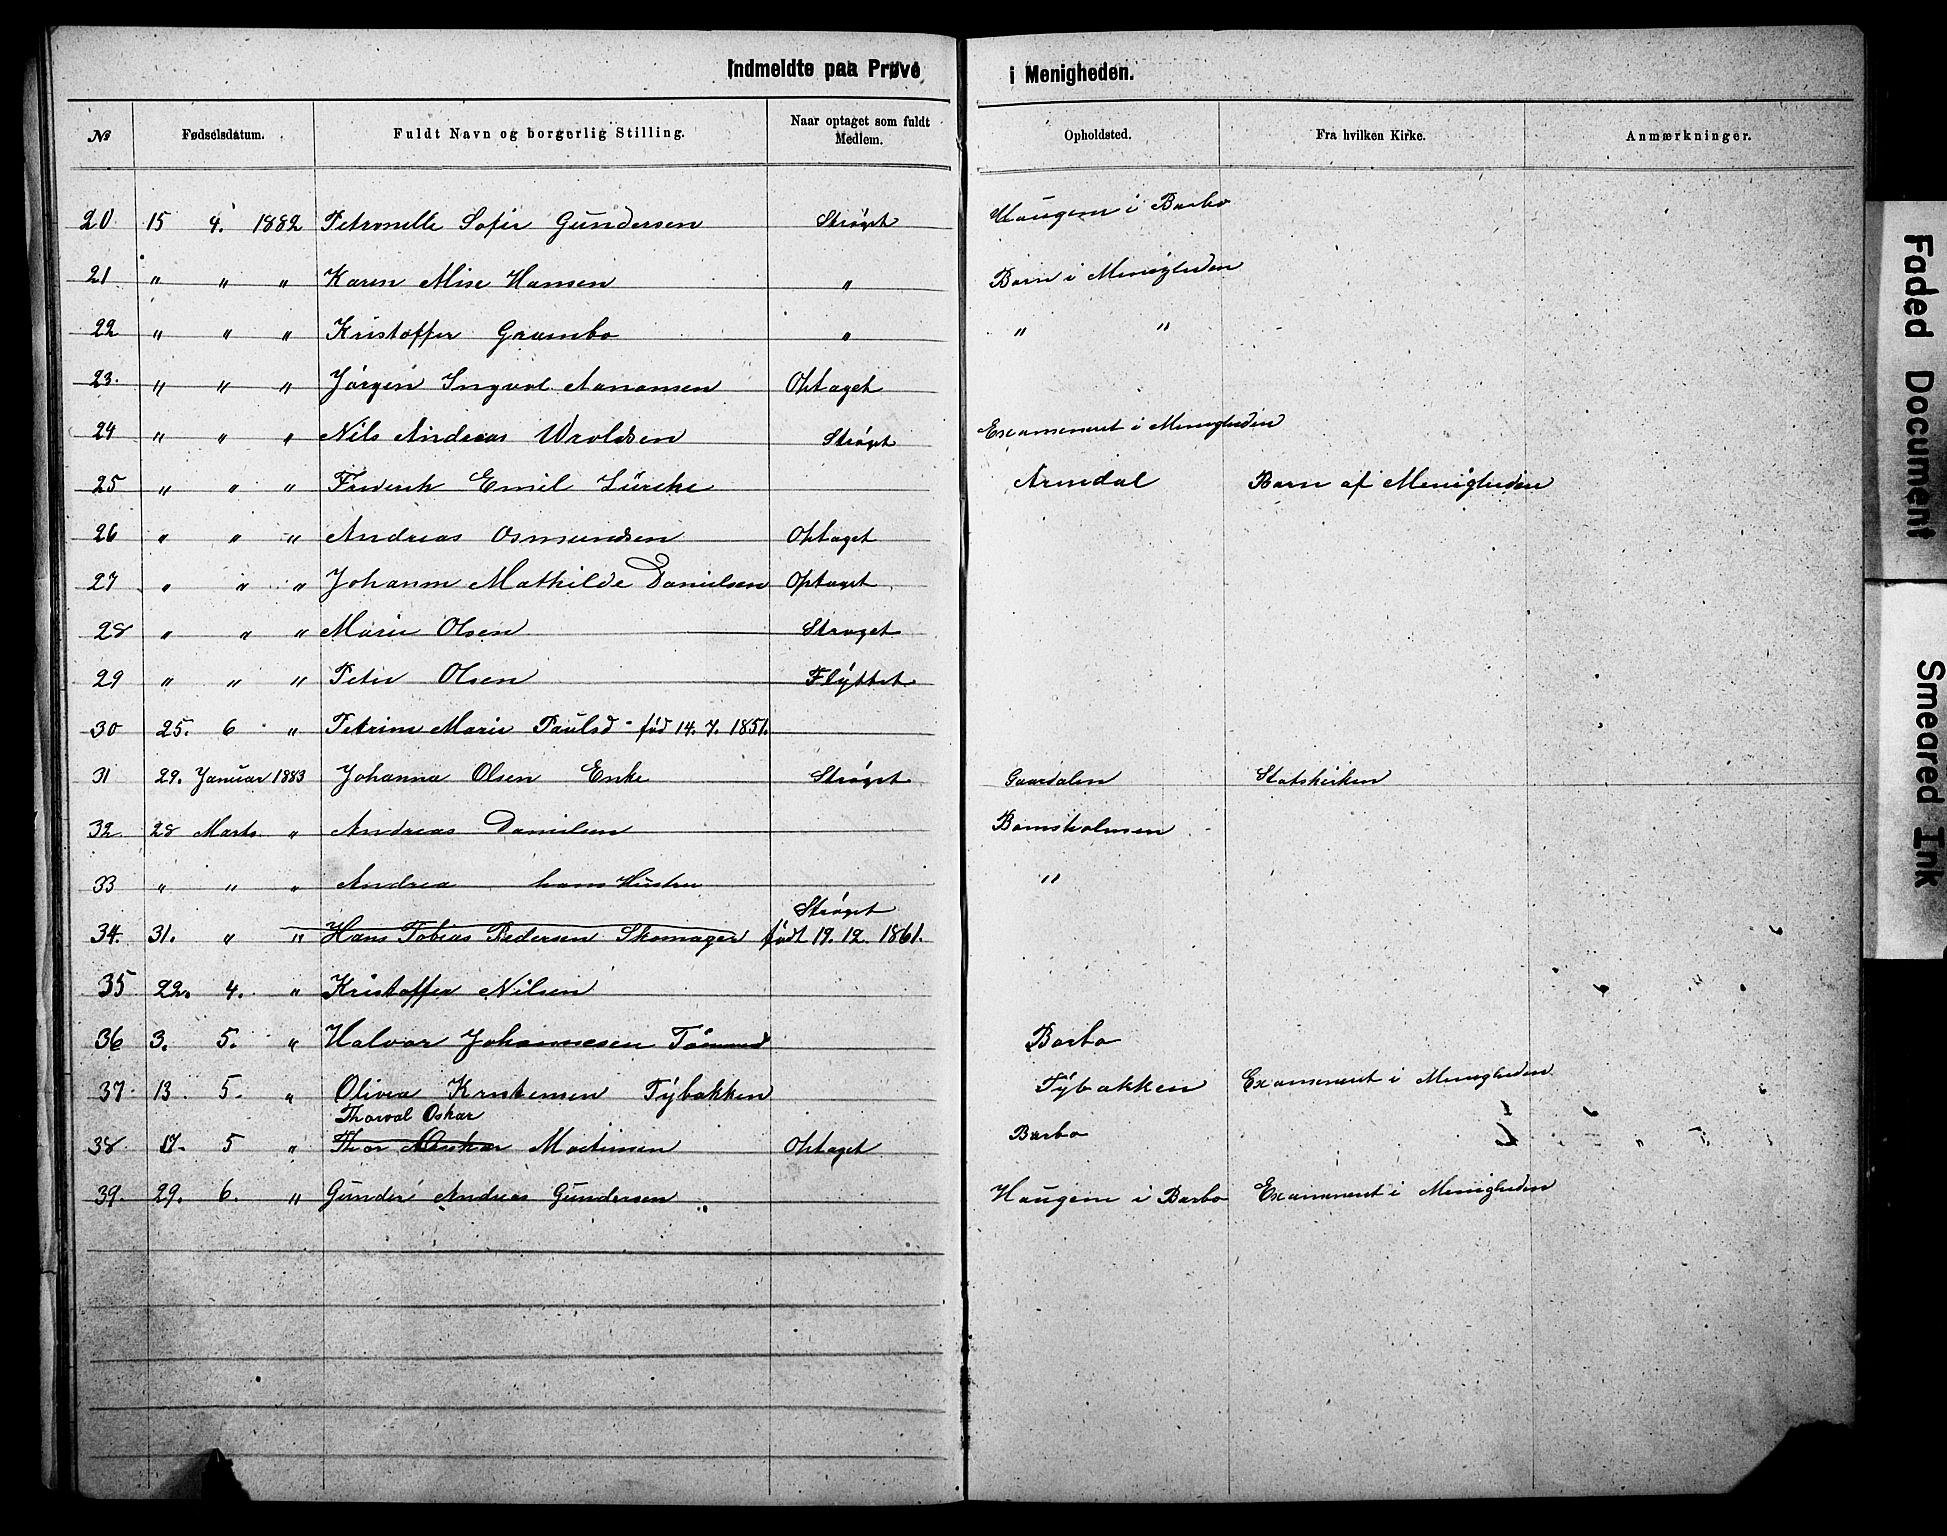 Indmeldte paa Prøve i Menigheden.
№ Fødselsdatum. Fuldt Navn og borgerlig Stilling. Naar optaget som fuldt Medlem. Opholdsted. Fra hvilken Kirke. Anmærkninger.
20. 15 4. 1882 Petronelle Sofie Gundersen Strøget Haugene i Barbo
21 " " " Karen Mise Hansen " Barn i Menigheden
22 " " " Kristoffer Grambo " " "
23. " " " Jörgen Ingval Aanonsen Optaget
24 " " " Nils Andreas Wroldsen Strøget Examineret i Menigheden
25 " " " Frederik Emil Lürcke Arendal Barn af Menigheden
26 " " " Andreas Osmundsen Optaget
27 " " " Johanne Mathilde Danielsen Optaget
28 " " " Marie Olsen Strøget
29 " " " Peter Olsen Flÿttet
30 25. 6 " Petrine Marie Paulsd. föd 14. 7. 1851.
31 29. Januar 1883 Johanna Olsen Enke Strøget Gaardalen Statskirken
32 28 Marts " Andreas Danielsen Bomsholmen
33 " " " Andrea hans Hustru "
Strøget
34. 31. " " Hans Tobias Pedersen Skomager födt 19. 12. 1861.
35 22. 4. " Kristoffer Nilsen
36 3. 5. " Halvor Johannesen Barbo
37 13. 5. " Olivia Kristensen Tÿbakken Tÿbakken Examineret i Menigheden
Thorval Oskar
38. 17. 5 " Thor Martinsen Optaget Barbo
39. 29. 6. " Gunder Andreas Gundersen Haugene i Barbo Examineret i Menigheden
Faded Document
Smeared Ink